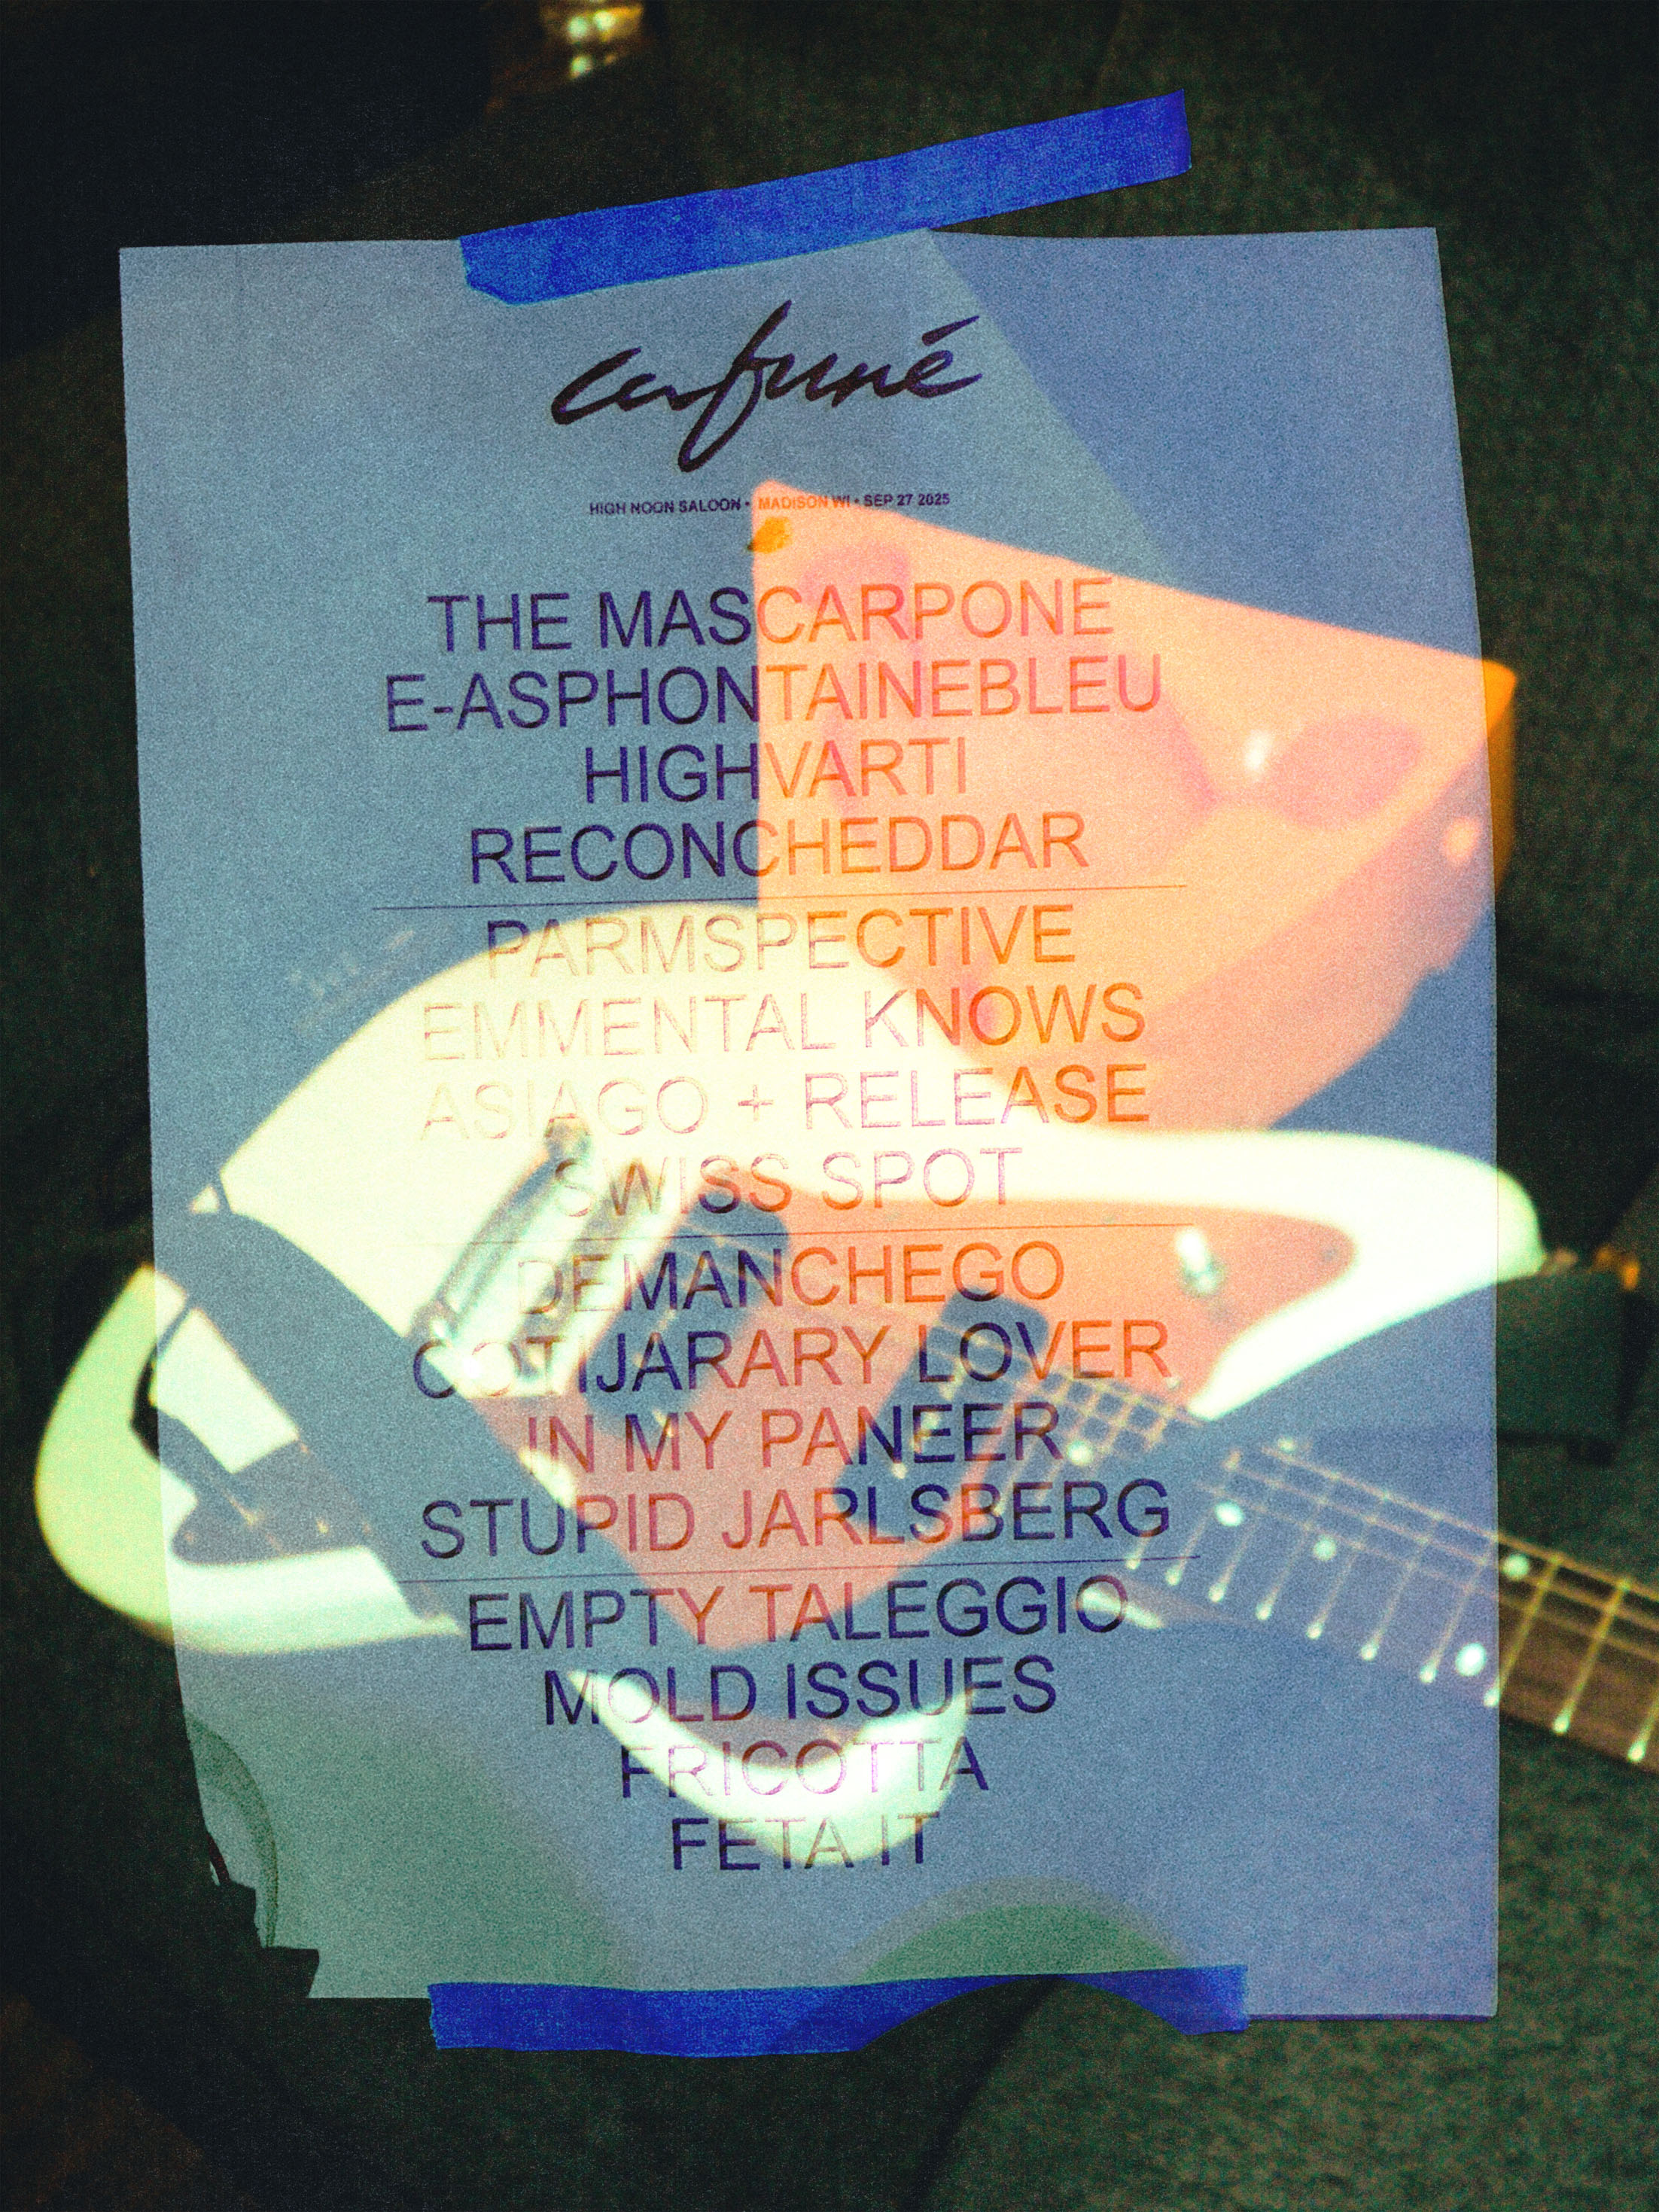 cafuné
HIGH NOON SALOON • MADISON WI • SEP 27 2025
THE MASCARPONE
E-ASPHONTAINEBLEU
HIGHVARTI
RECONCHEDDAR
PARMSPECTIVE
EMMENTAL KNOWS
ASIAGO + RELEASE
SWISS SPOT
DEMANCHEGO
COTIJARARY LOVER
IN MY PANEER
STUPID JARLSBERG
EMPTY TALEGGIO
MOLD ISSUES
FRICOTTA
FETA IT